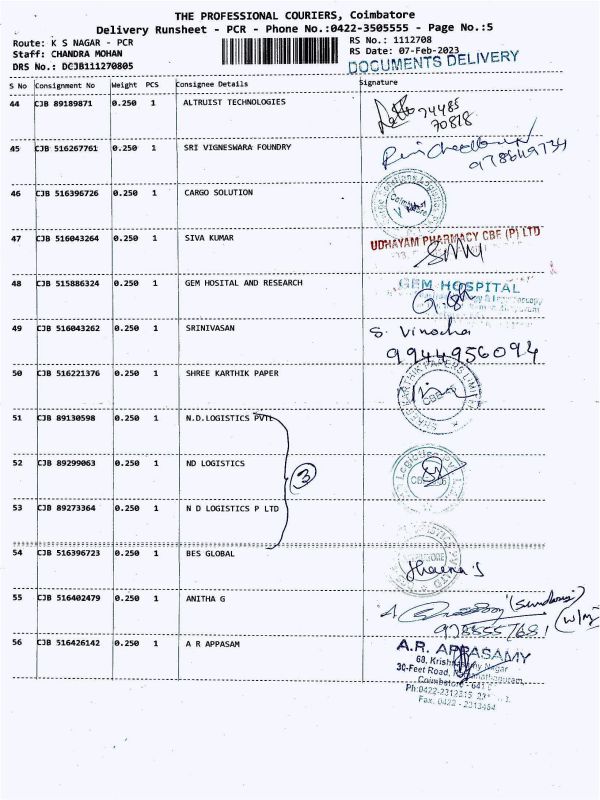 THE PROFESSIONAL COURIERS, Coimbatore
Delivery Runsheet - PCR - Phone No.:0422-3505555 - Page No.:5
Route: K S NAGAR - PCR RS No.: 1112708
Staff: CHANDRA MOHAN RS Date: 07-Feb-2023
DRS No.: DCJB111270805 DOCUMENTS DELIVERY
S No Consignment No Weight PCS Consignee Details Signature
44 CJB 89189871 0.250 1 ALTRUIST TECHNOLOGIES
74485
70818
45 CJB 516267761 0.250 1 SRI VIGNESWARA FOUNDRY
46 CJB 516396726 0.250 1 CARGO SOLUTION
Coimbatore
47 CJB 516043264 0.250 1 SIVA KUMAR UDHAYAM PHARMACY CBE (P) LTD
48 CJB 515886324 0.250 1 GEM HOSITAL AND RESEARCH GEM HOSPITAL
49 CJB 516043262 0.250 1 SRINIVASAN S. Vinodha
9944956094
50 CJB 516221376 0.250 1 SHREE KARTHIK PAPER
51 CJB 89130598 0.250 1 N.D.LOGISTICS PVTL
52 CJB 89299063 0.250 1 ND LOGISTICS 3
53 CJB 89273364 0.250 1 N D LOGISTICS P LTD
54 CJB 516396723 0.250 1 BES GLOBAL
55 CJB 516402479 0.250 1 ANITHA G
56 CJB 516426142 0.250 1 A R APPASAM A.R. APPASAMY
30-Feet Road,
Ph:0422-2312515
Fax. 0422 - 2313464